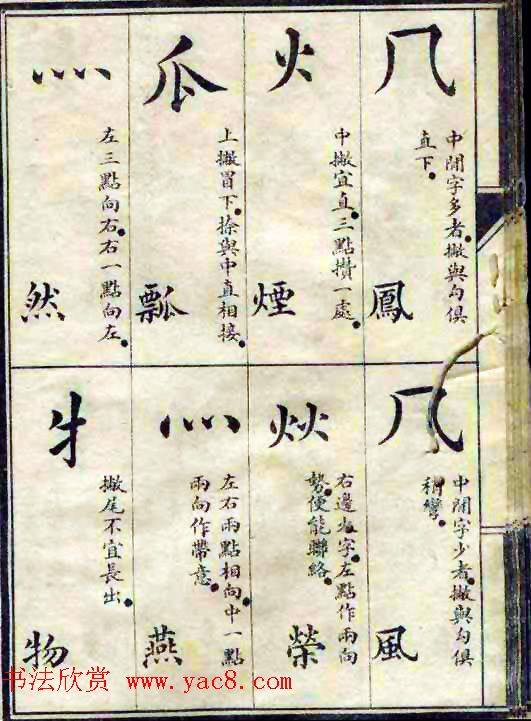 𠘨
中間字多者撇與勾俱
直下
鳳
火
中撇宜直三點攢一處
煙
瓜
上撇冒下捺與中直相接
瓢
灬
左三點向右右一點向左
然
𠘨
中間字少者撇與勾俱
稍彎
風
炏
右邊火字左點作兩向
勢便能聯絡
榮
灬
左右兩點相向中一點
兩向作帶意
燕
牜
撇尾不宜長出
物
书法欣赏 www.yac8.com